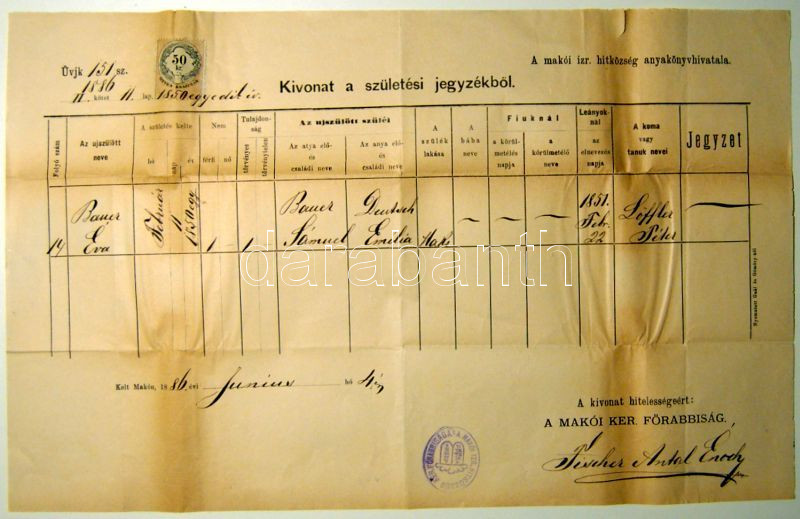 A makói izr. hitközség anyakönyvhivatala.
Üvjk 151 sz.
1886
50
kr.
II. kötet 11. lap. 1850 egyedik év.
Kivonat a születési jegyzékből.
Folyó szám
Az ujszülött neve
A születés kelte
hó
nap
év
Nem
férfi
nő
Tulajdonság
törvényes
törvénytelen
Az ujszülött szülei
Az atya elő- és családi neve
Az anya elő- és családi neve
A szülék lakása
A bába neve
Fiuknál
a körülmetélés napja
a körülmetélő neve
Leányoknál
az elnevezés napja
A koma vagy tanuk nevei
Jegyzet
19 Bauer Éva Február 11 1850 egy 1 – 1 Bauer Sámuel Deutsch Emilia Makó – – – 1851. Febr. 22 Löffler Péter —
darabanth
Nyomatott Gaál és Gömöry-nél
Kelt Makón, 1886 évi Junius hó 4én
A kivonat hiteleségeért:
A MAKÓI KER. FŐRABBISÁG.
Fischer Antal Enoch